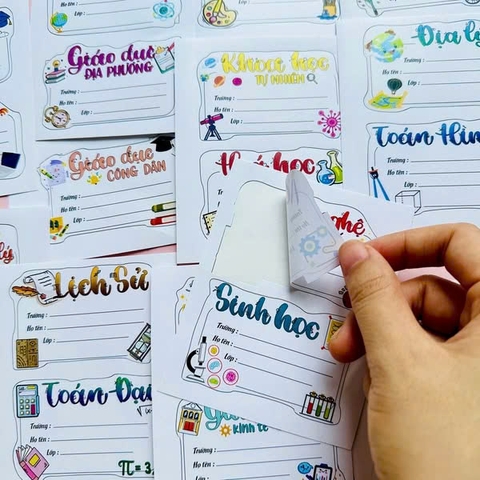 Giáo dục
ĐỊA PHƯƠNG
Trường :
Họ tên :
Lớp :
Khoa học
TỰ NHIÊN
Trường :
Họ tên :
Lớp :
Địa lý
Trường :
Họ tên :
Lớp :
Giáo dục
CÔNG DÂN
Trường :
Họ tên :
Lớp :
học
Toán Hìn
Trường :
Họ tên :
Lớp :
nghệ
Lịch Sử
Trường :
Họ tên :
Lớp :
Sinh học
Trường :
Họ tên :
Lớp :
Toán Đại
Trường :
Họ tên :
Lớp :
π = 3,
kinh tế
Trường :
Họ tên :
Lớp :